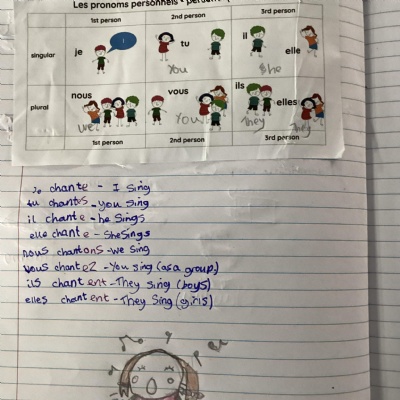 Les pronoms personnels
1st person 2nd person 3rd person
singular je tu il elle
You She
plural nous vous ils elles
We You They They
1st person 2nd person 3rd person
je chante - I sing
tu chantes - you sing
il chante - he sings
elle chante - She sings
nous chantons - We sing
vous chantez - You sing (as a group)
ils chantent - They sing (boys)
elles chantent - They sing (girls)